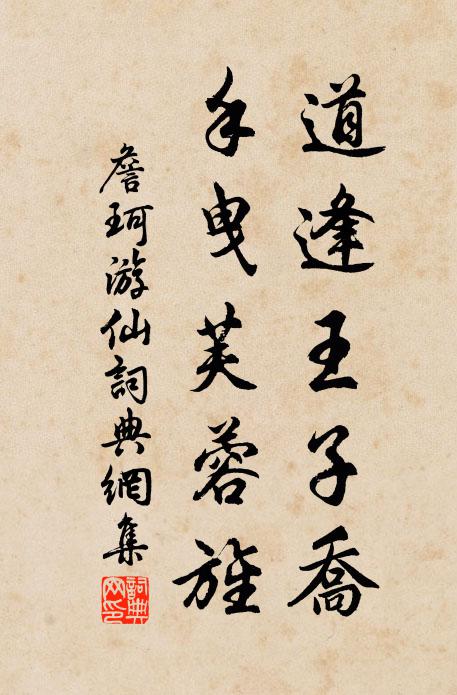 道逢王子喬
手曳芙蓉旌
詹珂游仙詞典網集
詞典
网印